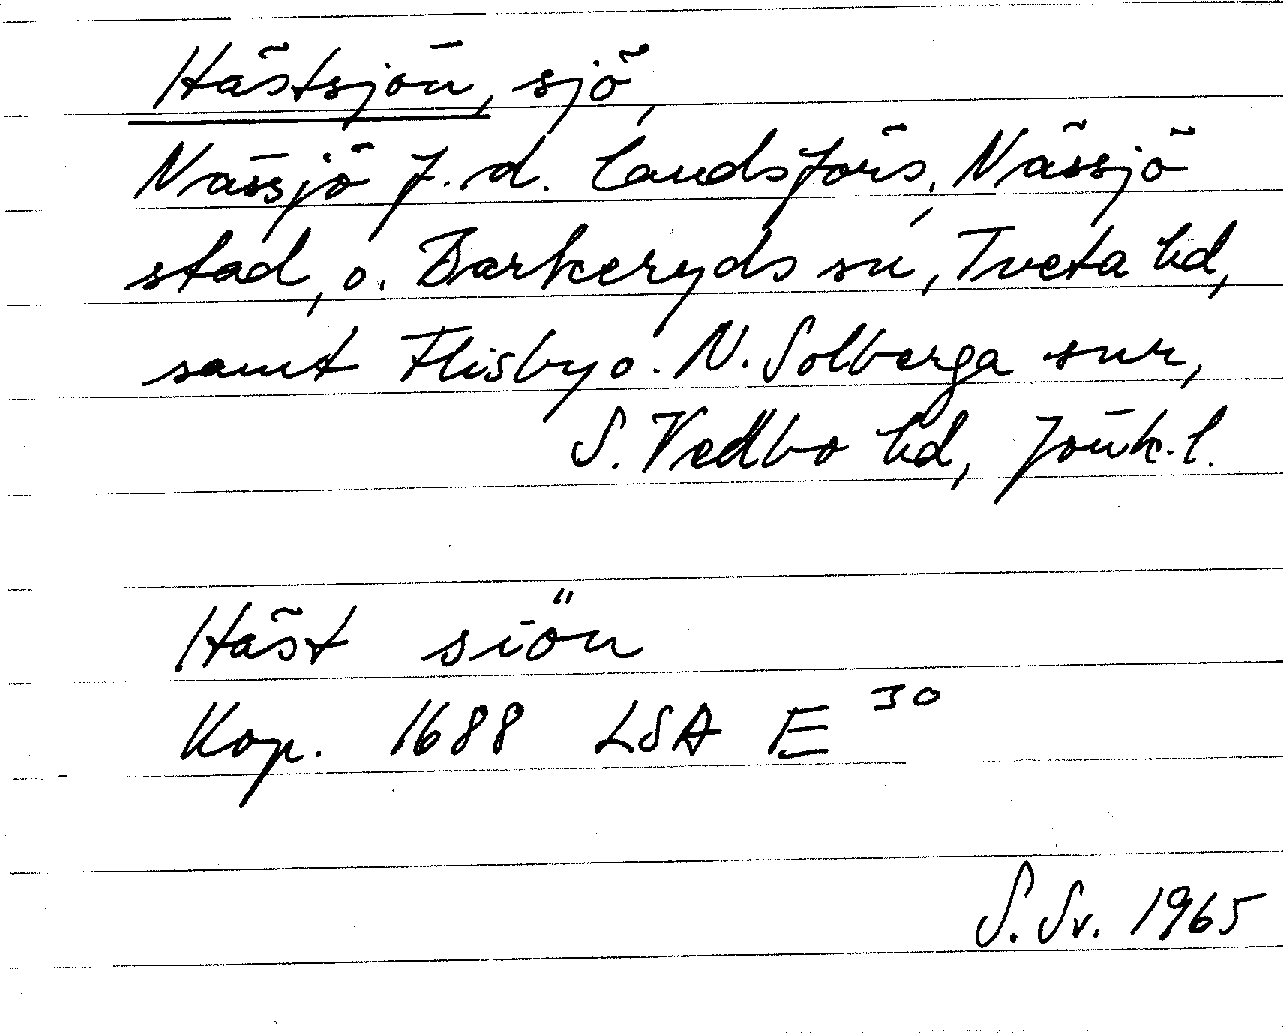 Hästsjön, sjö,
Nässjö f.d. landsförs, Nässjö
stad, o. Barkeryds sn, Tveta hd,
samt Flisby o. N. Solberga snr,
S. Vedbo hd, Jönk. l.
Häst siön
Kop. 1688 LSA E 30
S. Sv. 1965